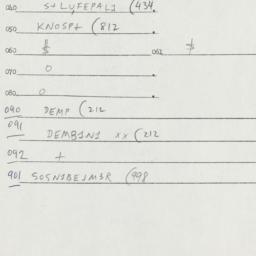 040 S+LYFEPAL1 (434.
050 KNOSP+ (812
060 $ 062 $
070 0.
080 0.
090 DEMP (212
091 DEMB1N1 xx (212
092 +
901 SOSN1BEJM3R (998